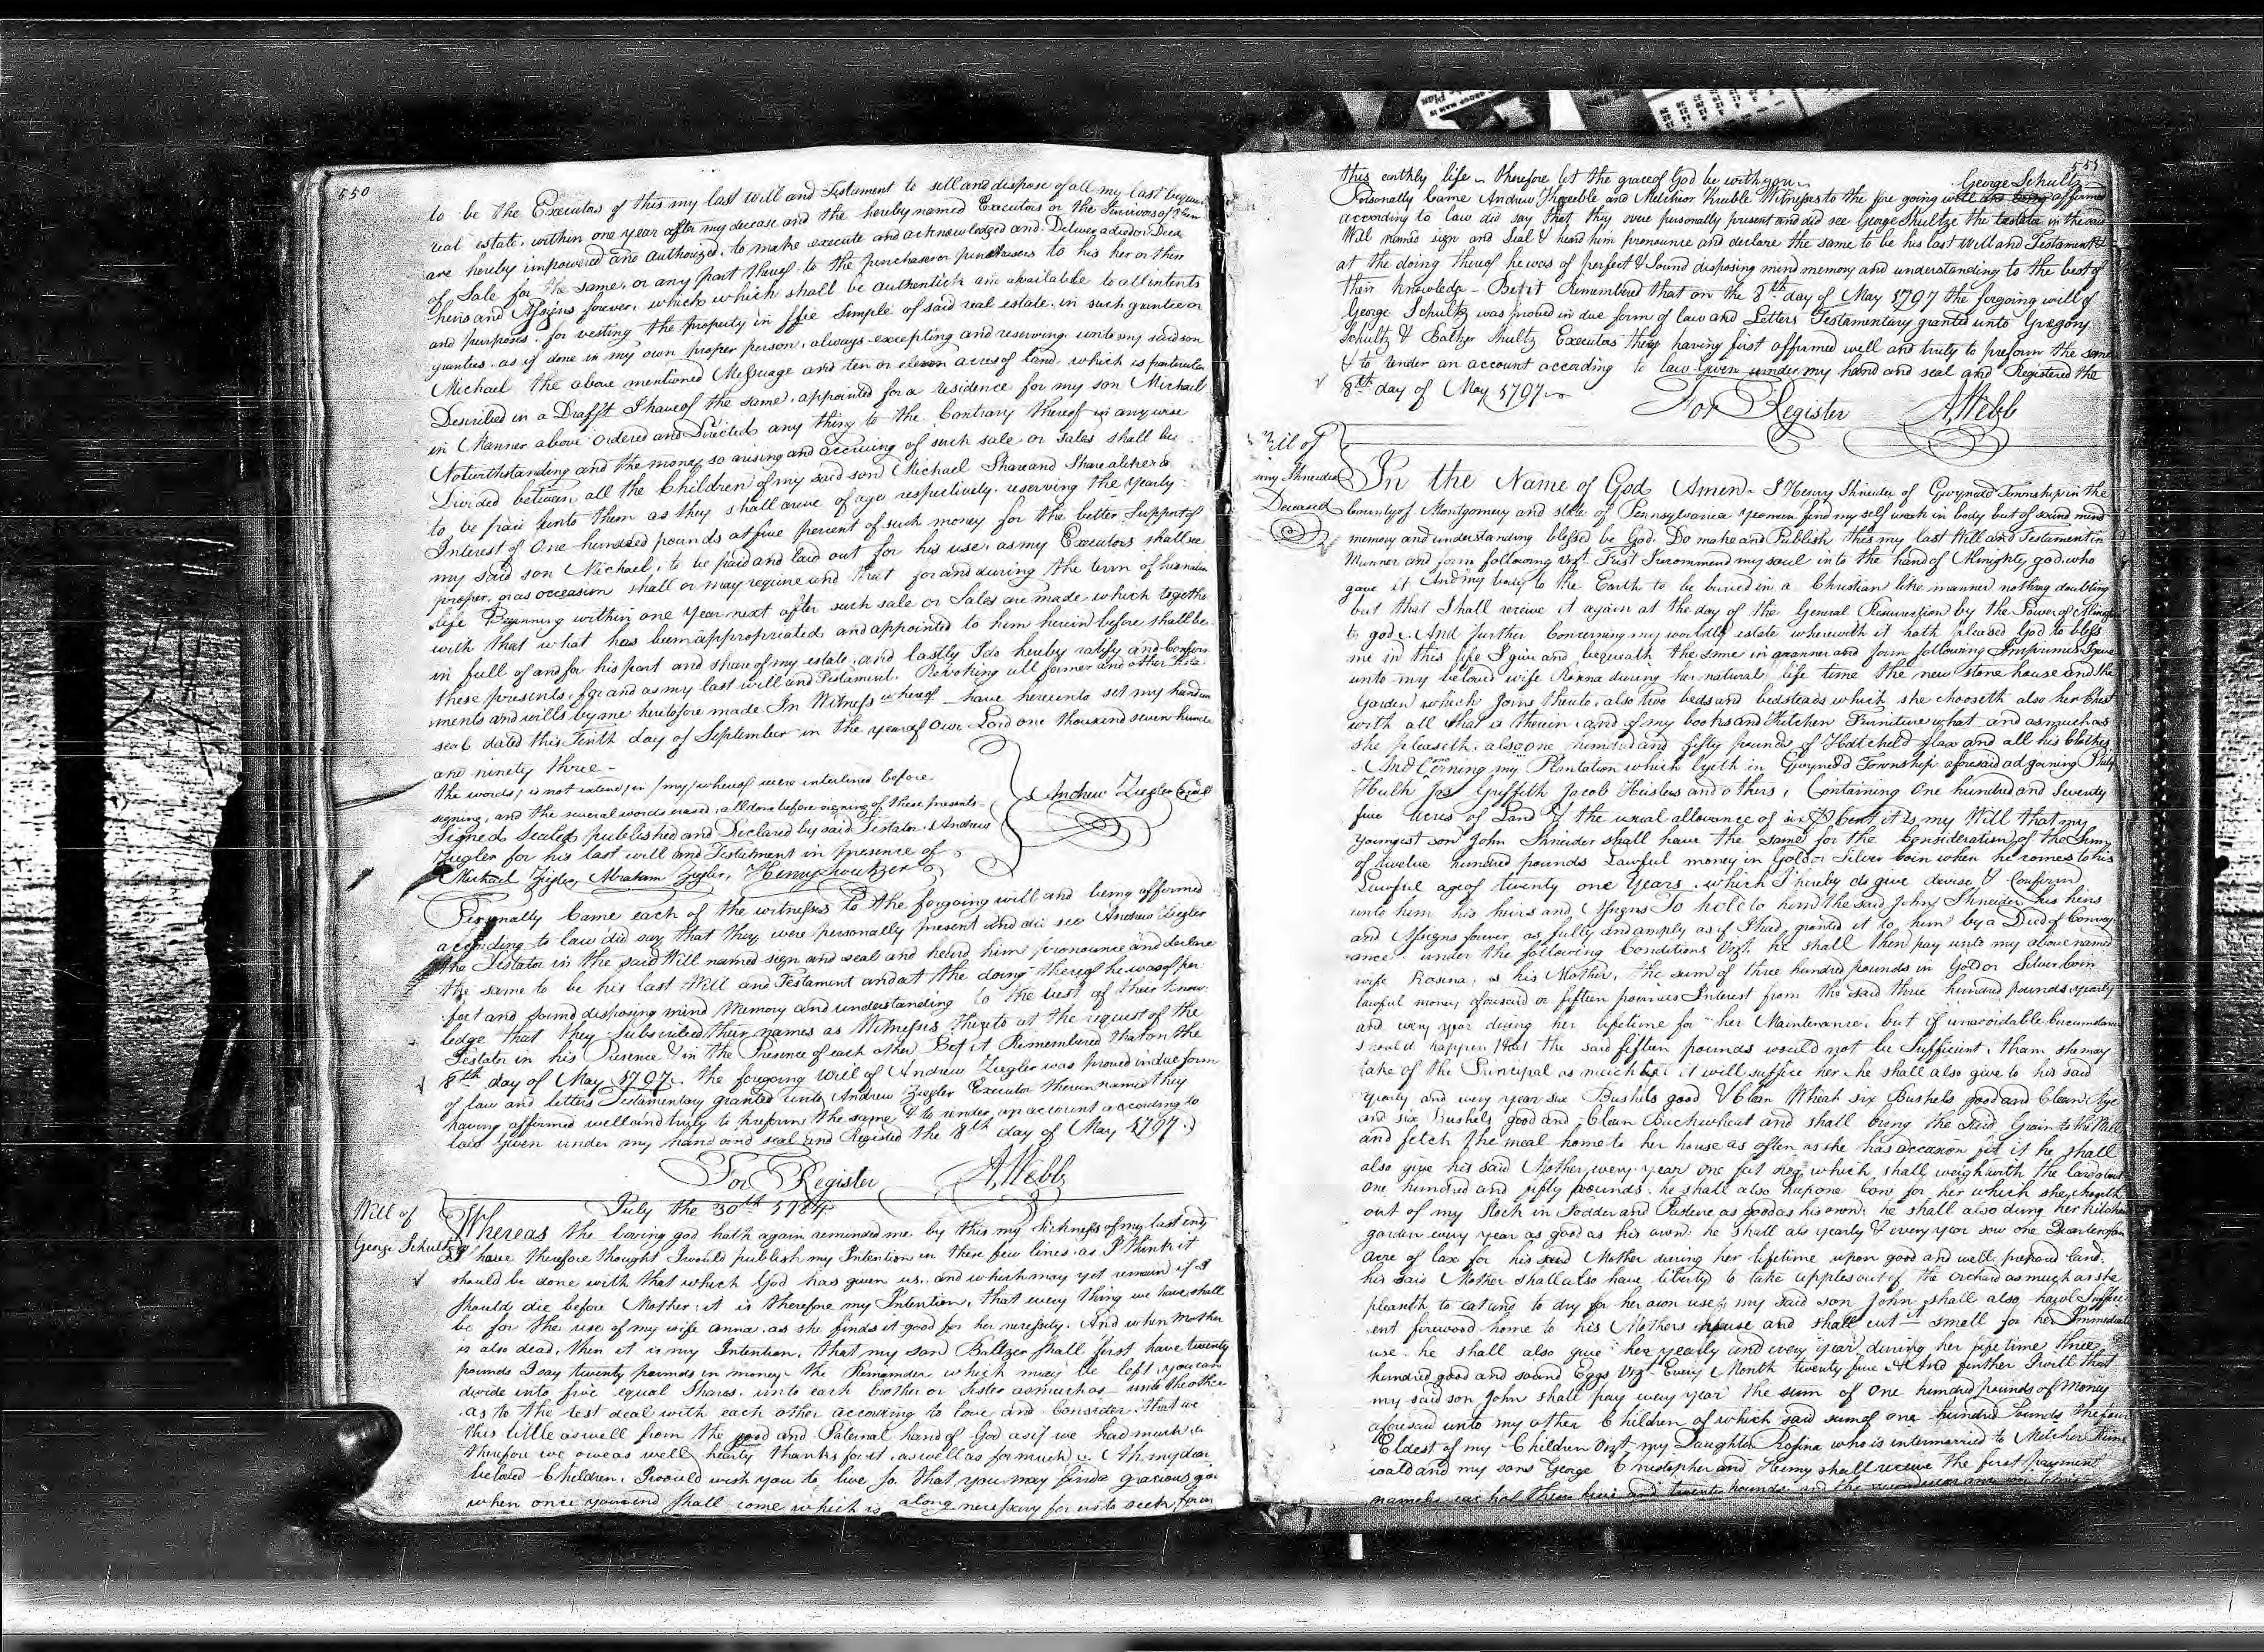 550
to be the Executors of this my last will and Testament to sell and dispose of all my last
real estate, within one year after my decease and the hereby named Executors or the Survivors of them
are hereby impowered and authorized, to make execute and acknowledged and Deliver a deed or Deeds
of Sale for the same, or any part thereof, to the purchaser or purchasers to his her or their
heirs and Assigns forever, which which shall be authentick and available to all intents
and purposes, for vesting the property in fee Simple of said real estate, in such grantee or
grantees, as if done in my own proper person, always excepting and reserving unto my said son
Michael the above mentioned Messuage and ten or eleven acres of land which is particular
Described in a Drafft I have of the same, appointed for a residence for my son Michael
in Manner above ordered and Directed any thing to the Contrary thereof in any wise
Notwithstanding and the money so arising and accruing of such sale or sales shall be
Divided between all the Children of my said son Michael Share and Share alike
to be paid unto them as they shall arive of age respectively, reserving the yearly
Interest of One hundred pounds at five percent of such money for the better Support of
my said son Michael, to be paid and laid out for his use, as my Executors shall see
proper, or as occasion shall or may require and that for and during the term of his natural
life Beginning within one year next after such sale or Sales are made which together
with that what has been appropriated and appointed to him herein before shall be
in full of and for his part and share of my estate, and lastly I do hereby ratify and Confirm
these presents, for and as my last will and Testament. Revoking all former and other Testa
ments and wills by me heretofore made In Witness whereof have hereunto set my hand and
seal dated this Tenth day of September in the year of Our Lord one thousand seven hundred
and ninety three
the words, is not extend, in / my / whereof were interlined before
signing, and the several words erased, all done before signing of these presents
Signed Sealed published and Declared by said Testator Andrew
Ziegler for his last will and Testament in presence of
Andrew Ziegler Seal
Michael Ziegler, Abraham Zigler, Henry
Personally Came each of the witnesses to the forgoing will and being affirmed
according to law did say that they were personally present and did see Andrew Ziegler
the Testator in the said Will named sign and seal and heard him pronounce and declare
the same to be his last Will and Testament and at the doing thereof he was of per
fect and sound disposing mind Memory and understanding to the best of their know
ledge that they Subscribed their names as Witnesses thereto at the request of the
Testator in his Presence & in the Presence of each other Be it Remembered that on the
8th day of May 1797 the foregoing will of Andrew Ziegler was proved in due form
of law and letters Testamentary granted unto Andrew Ziegler Executor therein named they
having affirmed well and truly to preform the same & to render an account according to
law Given under my hand and seal and Registed the 8th day of May 1797
For Register A Webb
July the 30th 1784
Will of
George Schultz
Whereas the loving god hath again reminded me by this my sickness of my last end
I have therefore thought I would publish my Intention in these few lines, as I think it
should be done with that which God has given us and which may yet remain if I
should die before Mother: it is therefore my Intention, that every thing we have shall
be for the use of my wife anna as she finds it good for her necessity. And when Mother
is also dead, then it is my Intention, that my son Baltzer shall first have twenty
pounds I say twenty pounds in money the Remainder which may be left, you can
divide into five equal Shares, unto each brother or Sister as much as unto the other
as to the rest deal with each other according to love and Consider that we
this little as well from the good and Paternal hand of God as if we had much
therefore we owe as well hearty thanks for it, as well as for much Oh my dear
beloved Children, I would wish you to live so that you may find a gracious god
when once your end shall come which is along necessary for us to seek for in
551
this earthly life therefore let the grace of God be with you George Schultz
Personally Came Andrew and Melchior Kreible Witnesses to the fore going will and being affirmed
according to law did say that they were personally present and did see George Shultze the testator in the said
Will named sign and Seal & heard him pronounce and declare the same to be his last Will and Testament &
at the doing thereof he was of perfect & Sound disposing mind memory and understanding to the best of
their knowledge Be it Remembered that on the 8th day of May 1797 the forgoing will of
George Schultz was proved in due form of law and Letters Testamentary granted unto Gregory
Schultz & Baltzer Shultz Executors they having first affirmed well and truly to preform the same
& to render an account according to law Given under my hand and seal and Registered the
8th day of May 1797
For Register A Webb
Will of
Henry Shneider
Deceased
In the Name of God Amen I Henry Shneider of Gwynedd Township in the
County of Montgomery and state of Pennsylvania yeoman find my self weak in body but of sound mind
memory and understanding blessed be God. Do make and Publish this my last Will and Testament in
Manner and form following Vizt First I recommend my soul into the hand of Almighty god, who
gave it And my body to the Earth to be buried in a Christian like manner nothing doubting
but that I shall receive it again at the day of the General Resurrection by the Power of Almigh
ty god. And further Concerning my worldly estate wherewith it hath pleased God to bless
me in this life I give and bequeath the same in manner and form following Imprimis I give
unto my beloved wife Rosina during her natural life time the new stone house and the
Garden which Joins thereto, also two beds and bedsteads which she chooseth also her Chest
with all what is therein, and of my books and Kitchen Furniture what and as much as
she pleaseth, also one hundred and fifty pounds of Hatcheld flax and all his Clothes
And Concerning my Plantation which lyeth in Gwynedd Township aforesaid adjoining Philip
Hulh Jos Griffith Jacob Heislers and others, Containing One hundred and Seventy
five Acres of Land & the usual allowance of six P Cent it is my Will that my
youngest son John Shneider shall have the same for the Consideration of the Sum
of twelve hundred pounds Lawful money in Gold or Silver Coin when he comes to his
Lawful age of twenty one Years, which I hereby do give devise & Confirm
unto him his heirs and Assigns To hold to him the said John Shneider his heirs
and Assigns forever as fully and amply as if I had granted it to him by a Deed of Convey
ance under the following Conditions Vizt. he shall then pay unto my above named
wife Rosina, is his Mother, the sum of three hundred pounds in Gold or Silver Coin
lawful money aforesaid or fifteen pounds Interest from the said three hundred pounds yearly
and every year during her lifetime for her Maintenance, but if unavoidable Circumstance
should happen that the said fifteen pounds would not be Sufficient, tham she may
take of the Principal as much as it will suffice her he shall also give to his said
yearly and every year six Bushels good & Clean Wheat six Bushels good and Clean Rye
and six Bushels good and Clean Buckwheat and shall bring the said Grain to the Mill
and fetch the meal home to her house as often as she has occasion for it he shall
also give his said Mother every year one fat hog which shall weigh with the lard about
one hundred and fifty pounds, he shall also keep one Cow for her which she chuseth
out of my Stock in Fodder and Pasture as good as his own: he shall also dung her kitchen
garden every year as good as his own: he shall als yearly & every year sow one Quarter of an
acre of lax for his said Mother during her lifetime upon good and well prepard land:
his said Mother shall also have liberty to take apples out of the orchard as much as she
pleaseth to eat and to dry for her own use, my said son John shall also hawl Suffici
ent firewood home to his Mothers house and shall cut it smell for her Immediate
use he shall also give her yearly and every year during her lifetime three
hundred good and sound Eggs Vizt Every Month twenty five And further I will that
my said son John shall pay every year the sum of One hundred pounds of Money
aforesaid unto my other Children of which said sum of one hundred Pounds the four
Eldest of my Children Vizt my Daughter Rosina who is intermarried to Melcher
and my sons George Christopher and Henry shall receive the first Payment
namely each of them five and twenty pounds and the